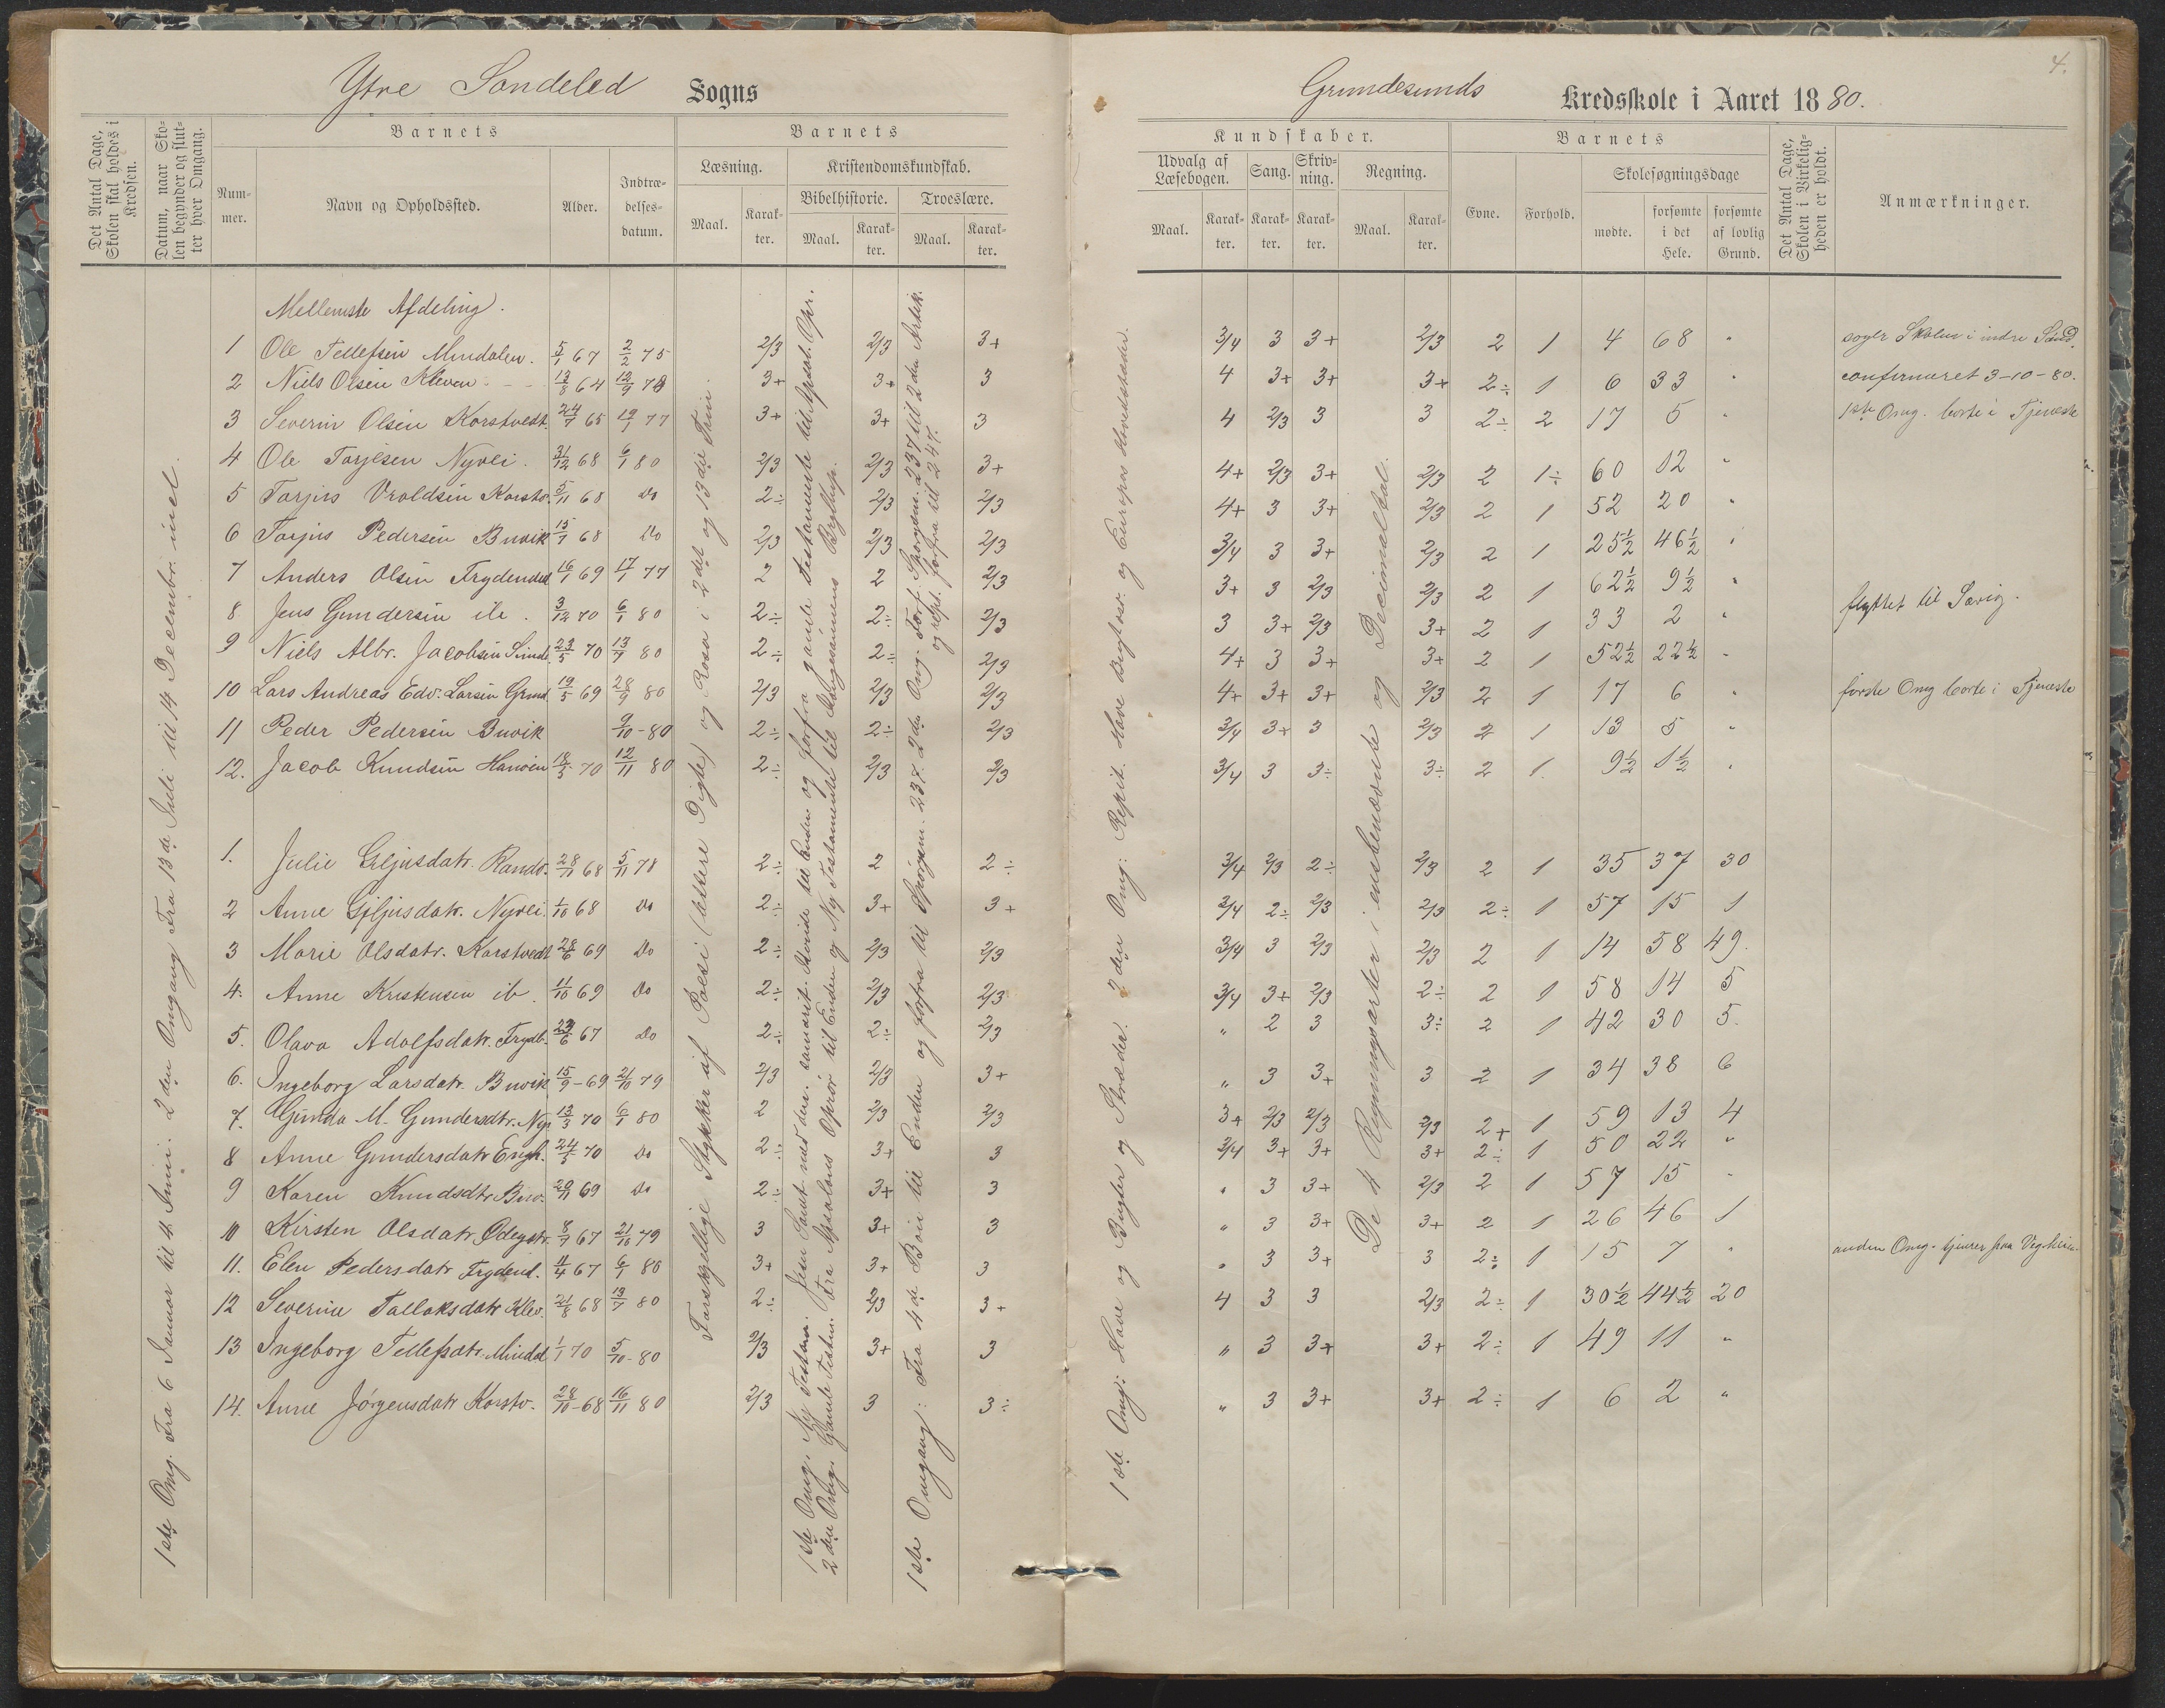 Ytre Søndeled Sogns
Det Antal Dage, Skolen skal holdes i Kredsen.
Datum, naar Skolen begynder og slutter hver Omgang.
Barnets
Nummer.
Navn og Opholdssted.
Alder.
Indtrædelsesdatum.
Barnets
Læsning.
Maal.
Karakter.
Kristendomskundskab.
Bibelhistorie.
Maal.
Karakter.
Troeslære.
Maal.
Karakter.
1ste Omg. Fra 6 Januar til 4 Juni. 2den Omgang Fra 13de Juli til 14 Decembr. incl.
Forskjellige Stykker af Poesi (lettere Digte) og Prosa i 2det og 13die Trin.
Mellemste Afdeling.
1 Ole Tellefsen Mindalen. 5/1 67 2/2 75 2/3 2/3 3+
2 Niels Olsen Kleven 13/8 64 12/9 78 3+ 3+ 3
3 Severin Olsen Korstvedt. 24/7 65 19/1 77 3+ 3+ 3
4 Ole Torjesen Nyvei. 31/12 68 6/1 80 2/3 2/3 3+
5 Torjus Vroldsen Korstv. 5/11 68 Do 2÷ 2/3 2/3
6 Torjus Pedersen Buvik 15/7 68 Do 2/3 2/3 2/3
7 Anders Olsen Frydendal 16/1 69 17/1 77 2 2 2/3
8. Jens Gundersen ib. 3/12 70 6/1 80 2÷ 2÷ 2/3
9 Niels Albr. Jacobsen Sund. 23/5 70 13/7 80 2÷ 2÷ 2/3
10 Lars Andreas Edv. Larsen Grund. 19/5 69 28/9 80 2/3 2/3 2/3
11 Peder Pedersen Buvik 9/10-80 2÷ 2÷ 2/3
12. Jacob Knudsen Hanven 18/5 70 12/11 80 2÷ 2/3 2/3
1. Julie Giljusdatr. Randv. 28/11 68 5/11 78 2÷ 2 2÷
2 Anne Giljusdatr. Nyvei. 1/10 68 Do 2÷ 3+ 3+
3 Marie Olsdatr. Korstvedt 28/6 69 Do 2÷ 2/3 2/3
4. Anne Kristensen ib. 11/10 69 Do 2÷ 2/3 2/3
5. Olava Adolfsdatr. Frydb. 23/6 67 Do 2÷ 2÷ 2/3
6. Ingeborg Larsdatr. Buvik 15/9-69 21/10 79 2/3 2/3 3+
7. Gunda M. Gundersdtr. Ny. 13/3 70 6/1 80 2 2/3 2/3
8 Anne Gundersdatr Engh. 24/5 70 Do 2÷ 3+ 3
9 Karen Knudsdtr Buv. 20/11 69 Do 2÷ 3+ 3
10 Kirsten Olsdatr Ødegst. 8/7 67 21/10 79 3 3+ 3
11. Elen Pedersdatr Frydend. 11/4 67 6/1 80 3+ 3+ 3
12 Severine Tallaksdatr Klev. 21/8 68 13/7 80 2÷ 2/3 3+
13 Ingeborg Tellefsdtr. Mindal 1/1 70 5/10-80 2/3 3+ 3
14. Anne Jørgensdatr Korstv. 28/10-68 16/11 80 2/3 3 3÷
1ste Omg. Ny Testam. Jesu Samt. med den samarit. Kvinde til Enden og forfra gamle Testamente til Apost. Opr.
2den Omg. Gamle Testm. Fra Absalons Oprør til Enden og Ny Testamentet til Kongesønnens Bryllup.
1ste Omgang: Fra 4de Bøn til Enden og forfra til Spørgsm. 237. 2den Omg. Forf. Spørgsm. 237 til 2den Artik.
og rept. forfra til 247.
Grundesunds Kredsskole i Aaret 1880.
4.
Kundskaber.
Udvalg af Læsebogen.
Maal.
Karakter.
Sang.
Karakter.
Skrivning.
Karakter.
Regning.
Maal.
Karakter.
Barnets
Evne.
Forhold.
Skolesøgningsdage
mødte.
forsømte i det Hele.
forsømte af lovlig Grund.
Det Antal Dage, Skolen i Virkeligheden er holdt.
Anmærkninger.
1ste Omg: Have og Bugter og Stræder. 2den Omg: Repet. Have Bugt osv. og Europas Hovedstæder.
De 4 Regningsarter i ensbenævnte og Decimaltal.
3/4 3 3+ 2/3 2 1 4 68 " søger Skolen i indre Sønd.
4 3+ 3+ 3+ 2÷ 1 6 33 " confirmeret 3-10-80.
4 2/3 3 3 2÷ 2 17 5 " 1ste Omg. borte i Tjeneste
4+ 2/3 3+ 2/3 2 1÷ 60 12 "
4+ 3 3+ 2/3 2 1 52 20 "
3/4 3 3+ 2/3 2 1 25½ 46½ "
3+ 3 2/3 2/3 2 1 62½ 9½ "
3 3+ 2/3 3+ 2 1 33 2 " flyttet til Sørig.
4+ 3 3+ 3+ 2 1 52½ 22½ "
4+ 3+ 3+ 2/3 2 1 17 6 " første Omg borte i Tjeneste
3/4 3+ 3 2/3 2 1 13 5 "
3/4 3 3÷ 3÷ 2 1. 9½ 1½ "
3/4 2/3 2÷ 2/3 2 1 35 37 30
3/4 2÷ 2/3 2/3 2÷ 1 57 15 1
3/4 3 2/3 2/3 2 1 14 58 49.
3/4 3+ 2/3 2÷ 2 1 58 14 5
" 2 3 3÷ 2 1 42 30 5.
" 3 3+ 3 2 1 34 38 6
3+ 2/3 2/3 2/3 2+ 1 59 13 4
3/4 3+ 3+ 3+ 2÷ 1 50 22 "
" 3 3+ 2/3 2 1 57 15 "
" 3 3+ 3+ 2 1 26 46 1
" 3 3+ 3 2÷ 1 15 7 " anden Omg. tjener paa
4 3 3 2/3 2÷ 1 30½ 44½ 20
" 3 3+ 3+ 2÷ 1 49 11 "
" 3 3+ 3+ 2÷ 1 6 2 "